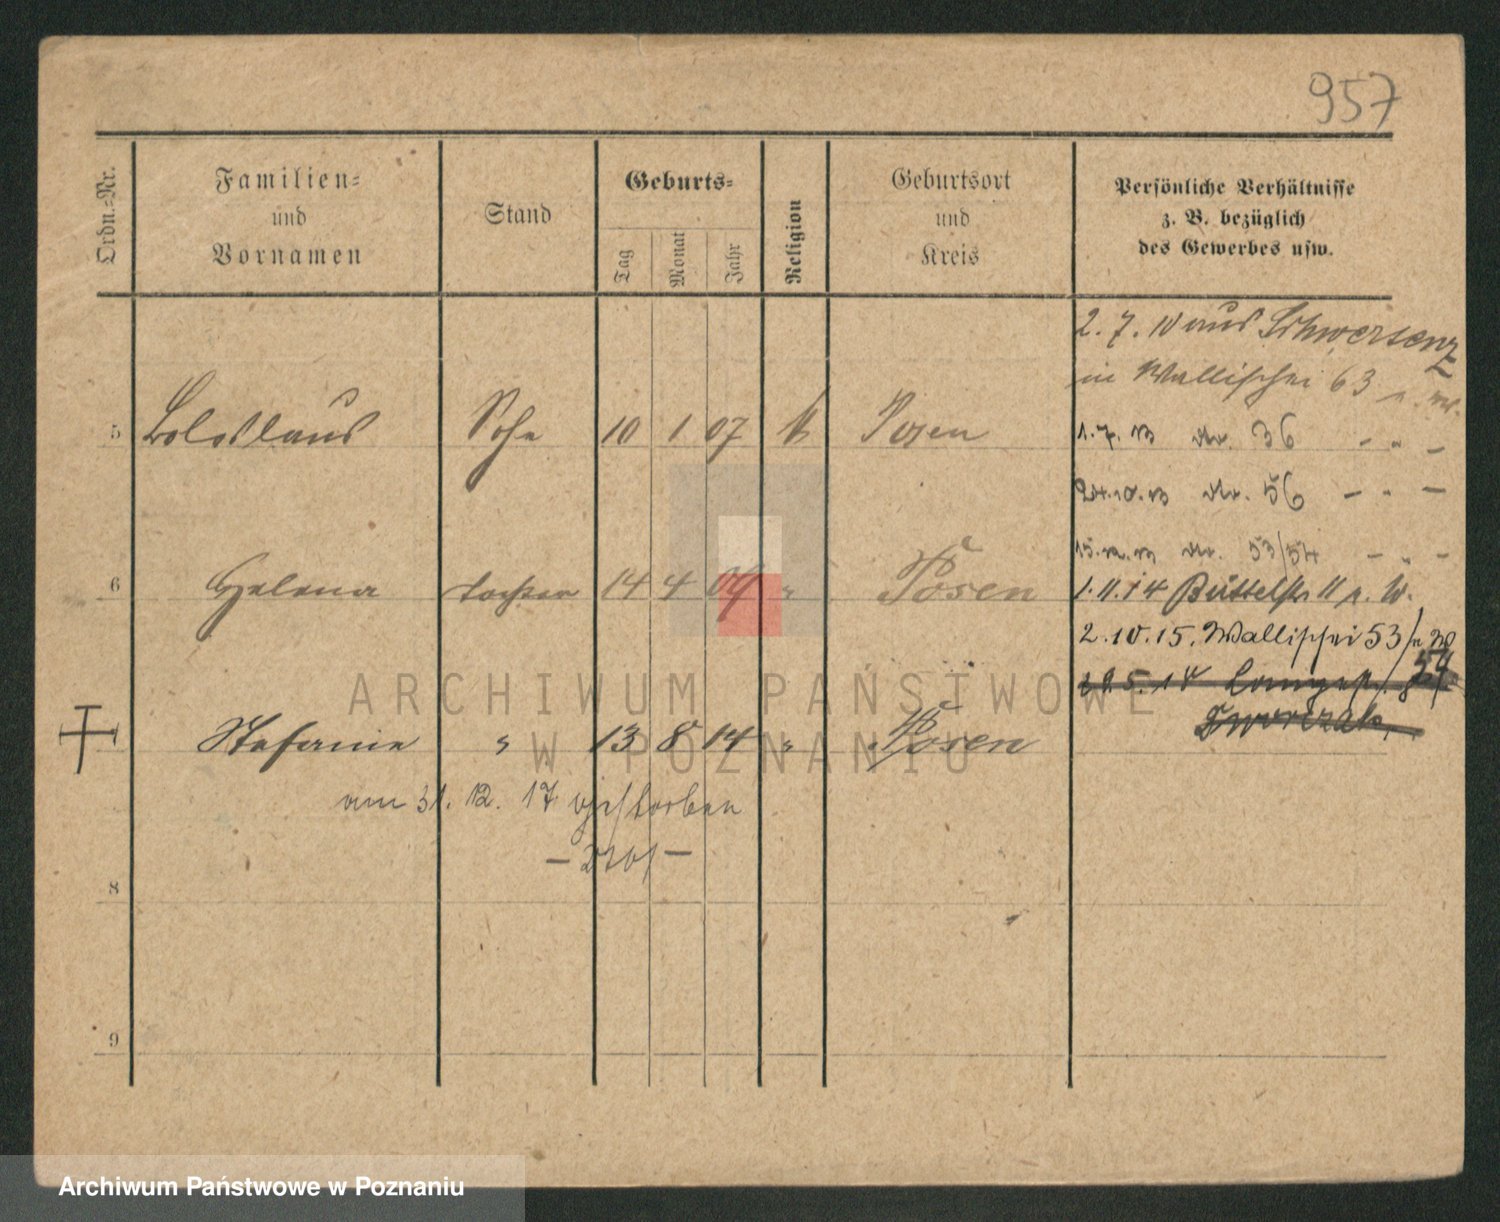 957
Ordn.-Nr.
Familien-
und
Vornamen
Stand
Geburts-
Tag
Monat
Jahr
Religion
Geburtsort
und
Kreis
Persönliche Verhältnisse
z. B. bezüglich
des Gewerbes usw.
2. 7. 10 aus Schwersenz
in Wallischei 63
5 Boleslaus Sohn 10 1 07 k Posen
1. 7. 13 Nr. 36 - " -
24. 10. 13 Nr. 56 - " -
15. 12. 13 Nr. 53/54 - " -
6 Helena Tochter 14 4 09 " Posen
1. 11. 14 Büttelstr. 11 b. W.
2. 10. 15. Wallischei 53/54
29. 5. 18
Stefanie " 13 8 14 " Posen
Dworczak
am 31. 12. 17 verstorben
8
9
ARCHIWUM PAŃSTWOWE
W POZNANIU
Archiwum Państwowe w Poznaniu